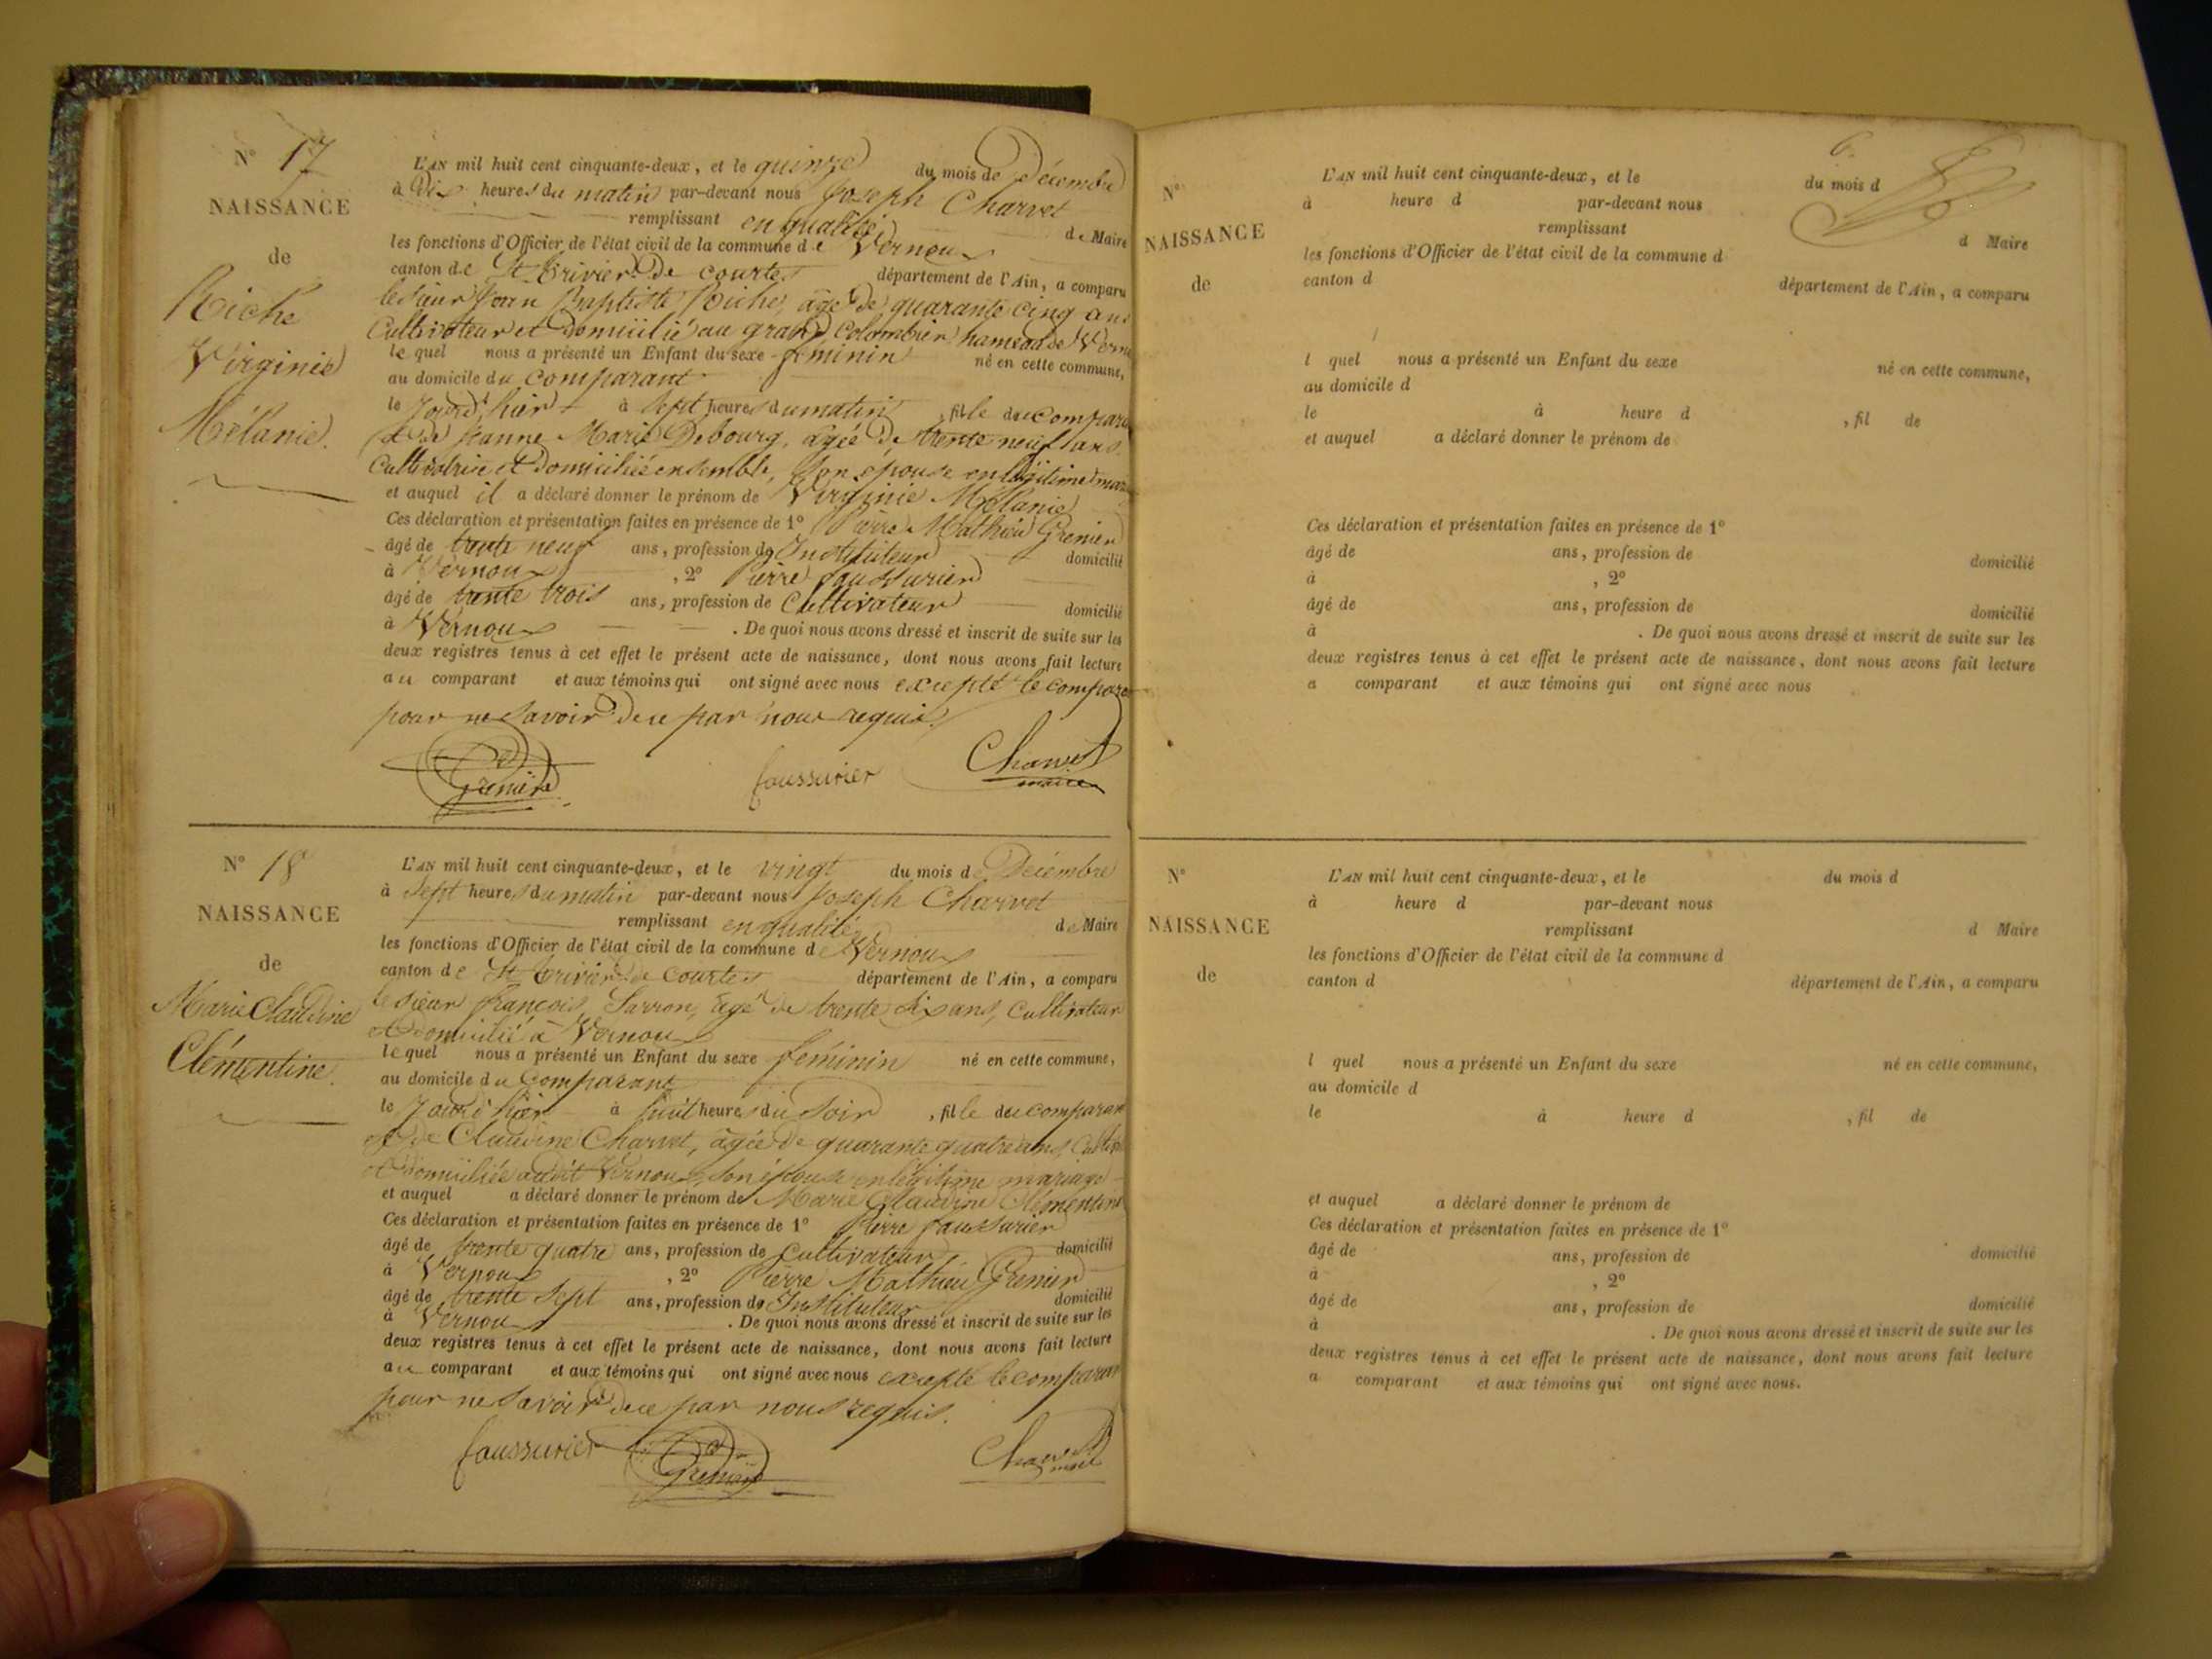 N° 17
NAISSANCE
de
Riche
Virginie
Mélanie.
L'AN mil huit cent cinquante-deux, et le quinze du mois de Décembre
à Dix heures du matin par-devant nous Joseph Charvet
remplissant en qualité de Maire
les fonctions d'Officier de l'état civil de la commune de Vernoux
canton de St Trivier de courtes département de l'Ain, a comparu
le sieur Jean Baptiste Riche, âgé de quarante cinq ans
Cultivateur et domicilié au grand Colombier hameau de
le quel nous a présenté un Enfant du sexe féminin né en cette commune,
au domicile du comparant
le jour d'hier à sept heures du matin, fille du
et de Jeanne Marie Debourg, âgée de trente neuf ans
Cultivatrice et domiciliée ensemble, son epouse en légitime
et auquel il a déclaré donner le prénom de Virginie Mélanie
Ces déclaration et présentation faites en présence de 1° Pierre Mathieu Grenier
âgé de trente neuf ans, profession de Instituteur domicilié
à Vernoux, 2° Pierre faussurier
âgé de trente trois ans, profession de Cultivateur domicilié
à Vernoux. De quoi nous avons dressé et inscrit de suite sur les
deux registres tenus à cet effet le présent acte de naissance, dont nous avons fait lecture
au comparant et aux témoins qui ont signé avec nous excepté le
pour ne savoir de ce par nous requis.
Grenier faussurier Charvet
maire
N° 18
NAISSANCE
de
Marie Claudine
Clémentine.
L'AN mil huit cent cinquante-deux, et le vingt du mois de Décembre
à Sept heures du matin par-devant nous Joseph Charvet
remplissant en qualité de Maire
les fonctions d'Officier de l'état civil de la commune de Vernoux
canton de St Trivier de Courtes département de l'Ain, a comparu
le sieur françois Sarron, âgé de trente six ans, Cultivateur
et domicilié à Vernoux
le quel nous a présenté un Enfant du sexe féminin né en cette commune,
au domicile du Comparant
le jour d'hier à huit heures du soir, fille du comparant
et de Claudine Charvet, âgée de quarante quatre ans,
et domiciliée audit Vernoux, son épouse en légitime mariage
et auquel a déclaré donner le prénom de Marie Claudine Clémentine
Ces déclaration et présentation faites en présence de 1° Pierre faussurier
âgé de trente quatre ans, profession de Cultivateur domicilié
à Vernoux, 2° Pierre Mathieu Grenier
âgé de trente sept ans, profession de Instituteur domicilié
à Vernoux. De quoi nous avons dressé et inscrit de suite sur les
deux registres tenus à cet effet le présent acte de naissance, dont nous avons fait lecture
au comparant et aux témoins qui ont signé avec nous excepté le comparant
pour ne savoir de ce par nous requis.
faussurier Grenier Charvet
6.
N°
NAISSANCE
de
L'AN mil huit cent cinquante-deux, et le du mois d
à heure d par-devant nous
remplissant d Maire
les fonctions d'Officier de l'état civil de la commune d
canton d département de l'Ain, a comparu
l quel nous a présenté un Enfant du sexe né en cette commune,
au domicile d
le à heure d , fil de
et auquel a déclaré donner le prénom de
Ces déclaration et présentation faites en présence de 1°
âgé de ans, profession de domicilié
à , 2°
âgé de ans, profession de domicilié
à . De quoi nous avons dressé et inscrit de suite sur les
deux registres tenus à cet effet le présent acte de naissance, dont nous avons fait lecture
a comparant et aux témoins qui ont signé avec nous
N°
NAISSANCE
de
L'AN mil huit cent cinquante-deux, et le du mois d
à heure d par-devant nous
remplissant d Maire
les fonctions d'Officier de l'état civil de la commune d
canton d département de l'Ain, a comparu
l quel nous a présenté un Enfant du sexe né en cette commune,
au domicile d
le à heure d , fil de
et auquel a déclaré donner le prénom de
Ces déclaration et présentation faites en présence de 1°
âgé de ans, profession de domicilié
à , 2°
âgé de ans, profession de domicilié
à . De quoi nous avons dressé et inscrit de suite sur les
deux registres tenus à cet effet le présent acte de naissance, dont nous avons fait lecture
a comparant et aux témoins qui ont signé avec nous.